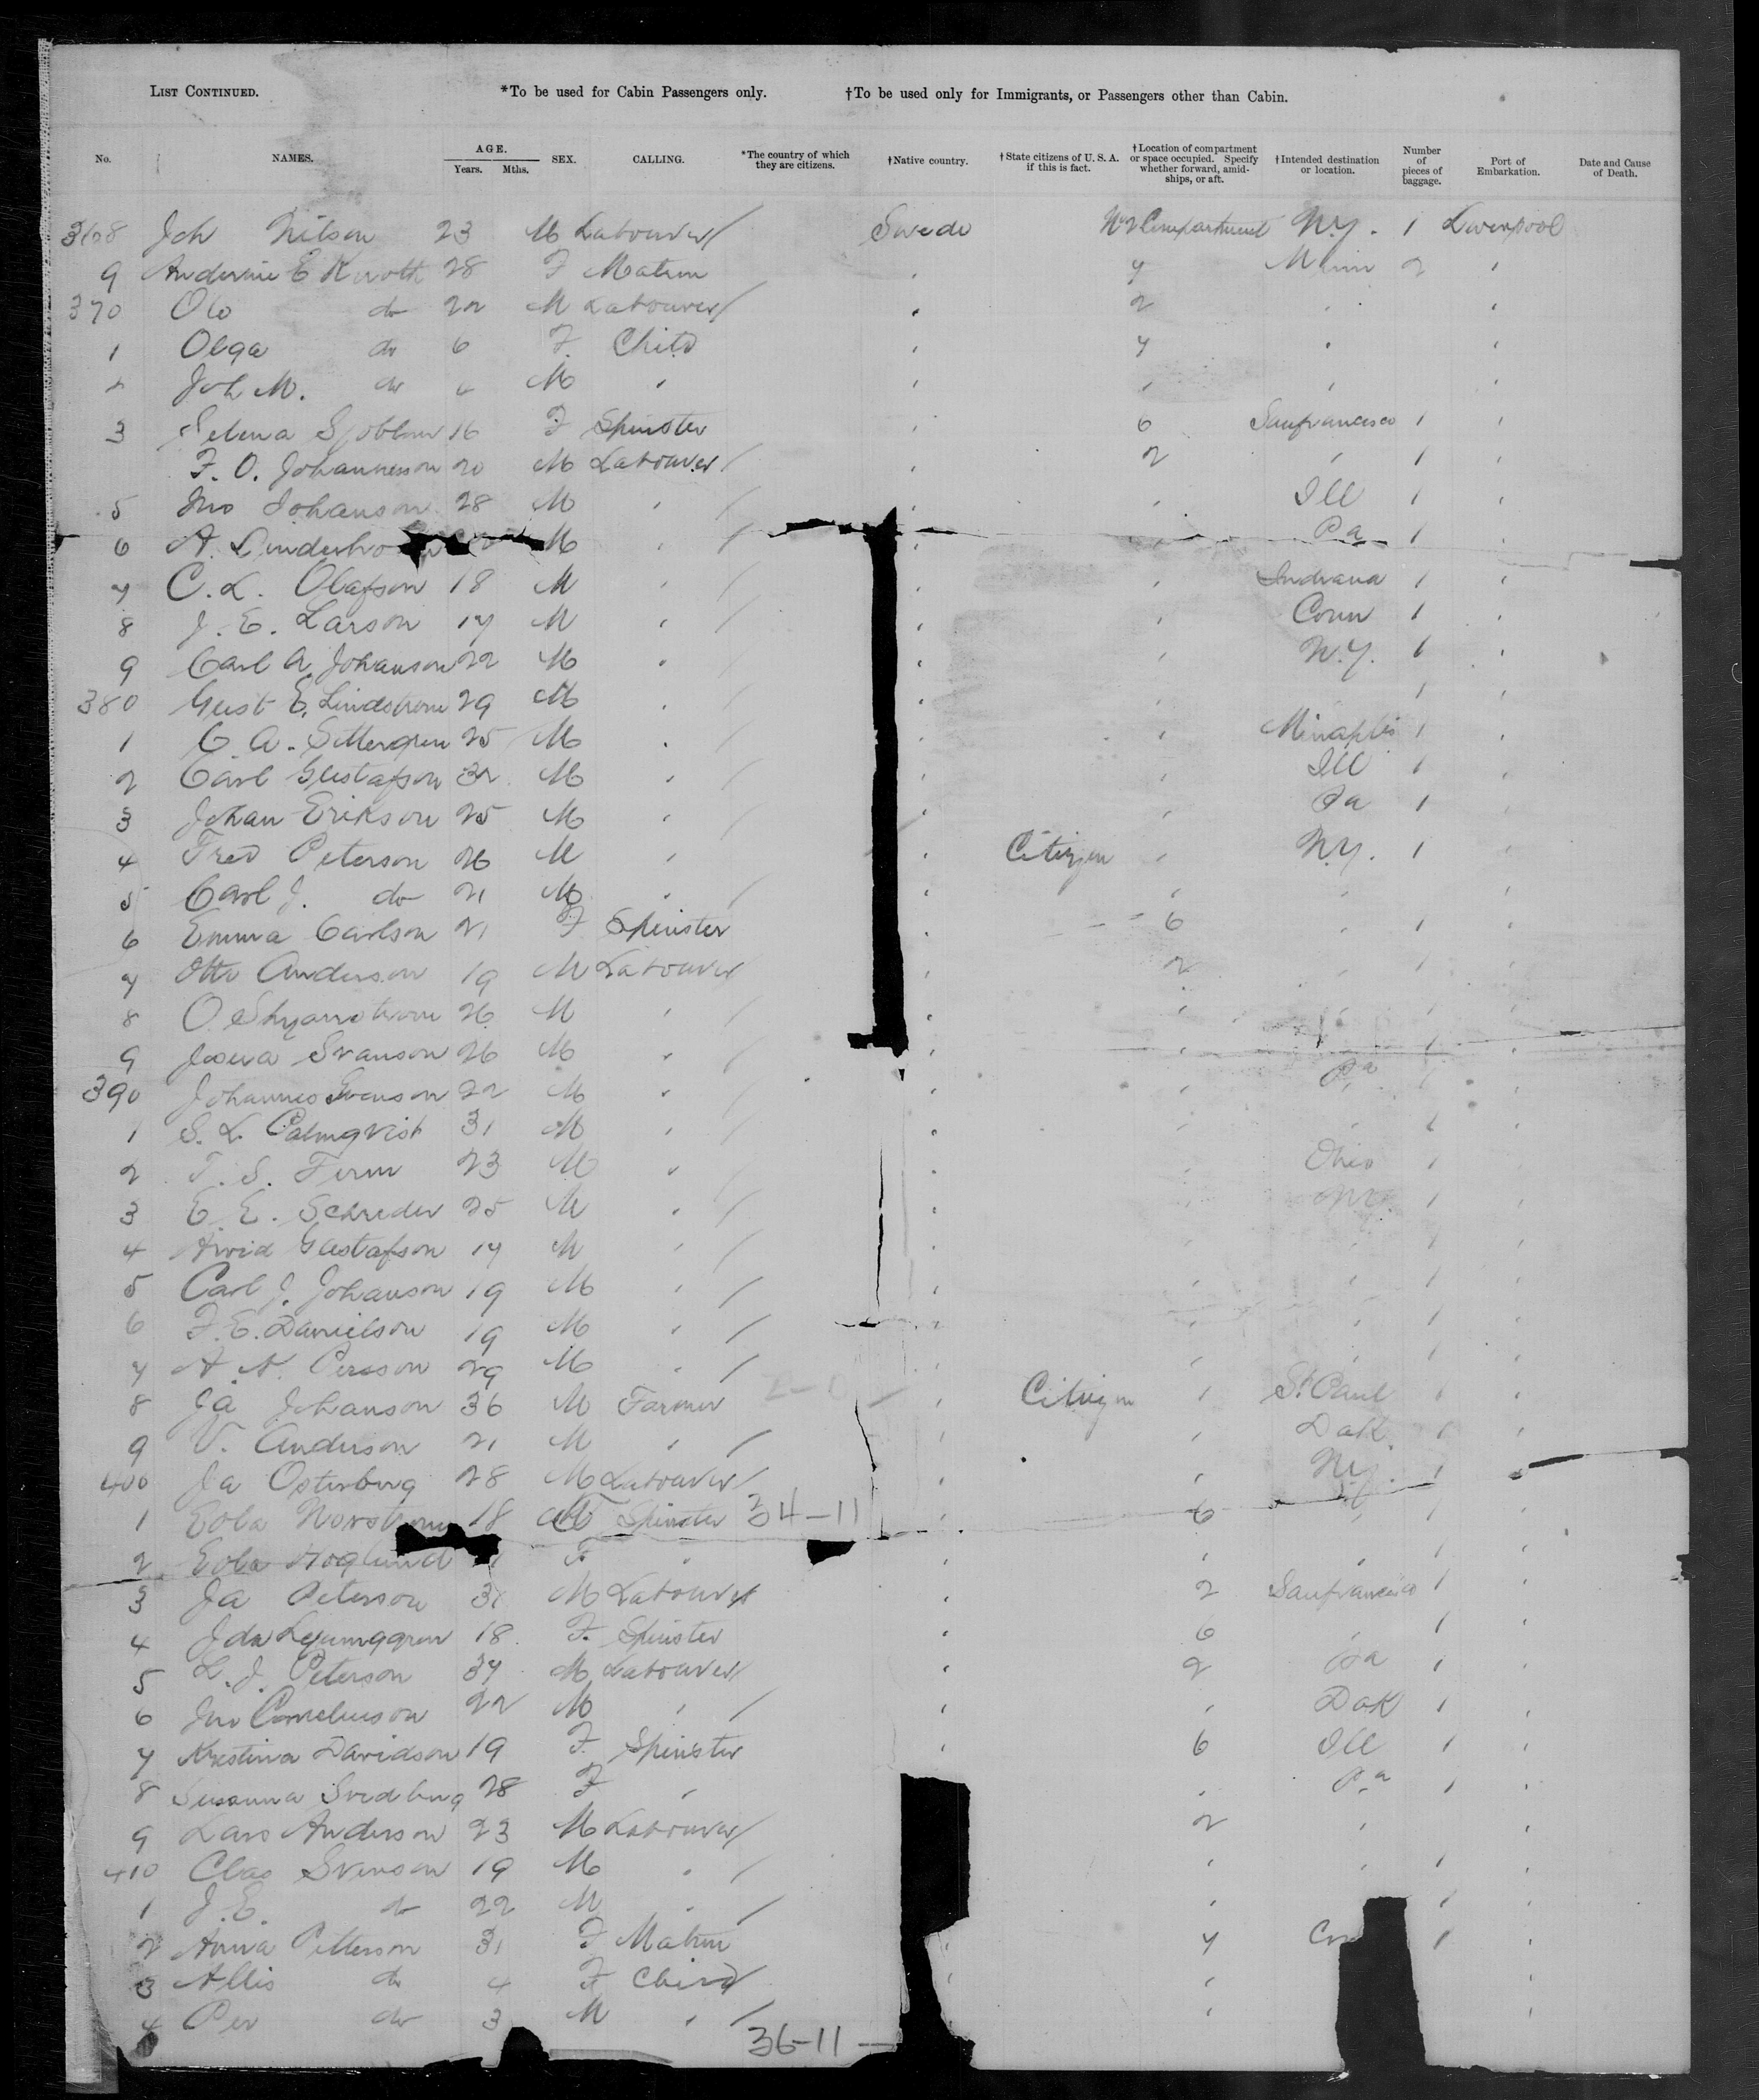 LIST CONTINUED. *To be used for Cabin Passengers only. †To be used only for Immigrants, or Passengers other than Cabin.
No. NAMES. AGE. Years. Mths. SEX. CALLING. *The country of which they are citizens. †Native country. †State citizens of U. S. A. if this is fact. †Location of compartment or space occupied. Specify whether forward, amidships, or aft. †Intended destination or location. Number of pieces of baggage. Port of Embarkation. Date and Cause of Death.
368 Joh Nilson 23 M Labourer / Swede No 2 Compartment N.Y. 1 Liverpool
9 E 28 F Matrn ' 4 Minn 2 '
370 Olo do 22 M Labourer / ' 2 ' '
1 Olga do 6 F. Child ' 4 ' '
2 Joh M. do 4 M ' ' ' ' '
3 Selma Sjoblom 16 F Spinster ' 6 Sanfrancisco 1 '
F. O. Johannesson 20 M Labourer / ' 2 ' 1 '
5 Jno Johanson 28 M ' / ' ' Ill 1 '
6 A. M ' / ' ' Pa 1 '
7 C. L. Olafson 18 M ' / ' ' Indiana 1 '
8 J. E. Larson 17 M ' / ' ' Conn 1 '
9 Carl A. Johanson 22 M ' / ' ' N.Y. 1 '
380 Gust E. Lindstrom 29 M ' / ' ' 1 '
1 C. A. Settergren 25 M ' / ' ' Minaplis 1 '
2 Carl Gustafson 32 M ' / ' ' Ill 1 '
3 Johan Erikson 25 M ' / ' ' Pa 1 '
4 Fred Peterson 26 M ' ' Citizen ' N.Y. 1 '
5 Carl J. do 21 M ' / ' ' ' '
6 Emma Carlson 21 F Spinster 6 ' 1 '
7 Otto Anderson 19 M Labourer / ' 2 ' 1 '
8 O. 26 M ' / ' ' ' '
9 Svanson 26 M ' / ' ' 1 '
390 Johannes Svenson 22 M ' / ' ' Pa 1 '
1 S. L. Palmqvist 31 M ' / ' ' ' 1 '
2 T. S. Ferm 23 M ' ' ' Ohio 1 '
3 E. E. Schreder 25 M ' / ' ' N.Y. 1 '
4 Arvid Gustafson 17 M ' / ' ' 1 '
5 Carl J. Johanson 19 M ' / ' ' ' 1 '
6 F. E. Danielson 19 M ' / ' ' ' 1 '
7 A. N. Persson 29 M ' / ' ' ' 1 '
8 Ja Johanson 36 M Farmer ' Citizen ' St Paul 1 '
9 V. Anderson 21 M ' / ' ' Dak. 1 '
400 Ja Osterberg 28 M Labourer / ' ' N.Y. 1 '
1 Norstrom 18 F Spinster 34-11 ' 6 ' 1 '
2 Hoglund F ' ' ' ' 1 '
3 Ja Peterson 31 M Labourer ' 2 Sanfrancisco 1 '
4 Ida 18 F. Spinster ' 6 ' 1 '
5 L. J. Peterson 37 M Labourer / ' 2 Pa 1 '
6 Jno Corneliuson 22 M ' / ' ' Dak 1 '
7 Kristina Davidson 19 F. Spinster ' 6 Ill 1 '
8 Susanna Svedberg 28 F ' ' Pa 1 '
9 Lars Anderson 23 M Labourer / 2 ' '
410 Clas Svenson 19 M ' / ' ' 1 '
1 J. E. do 22 M ' / ' 1 '
2 Anna Petterson 31 F Matrn ' 4 1 '
3 Allis do 4 F Child / ' ' '
4 Per do 3 M ' / ' '
36-11